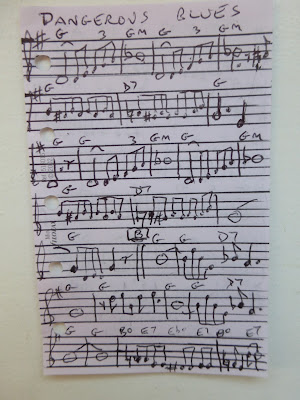 DANGEROUS BLUES
G 3 GM G GM
G D7 G
G 3 GM G GM
G D7
G B G G D7
G G G G D7
G G B° E7 Eb° E7 B° E7